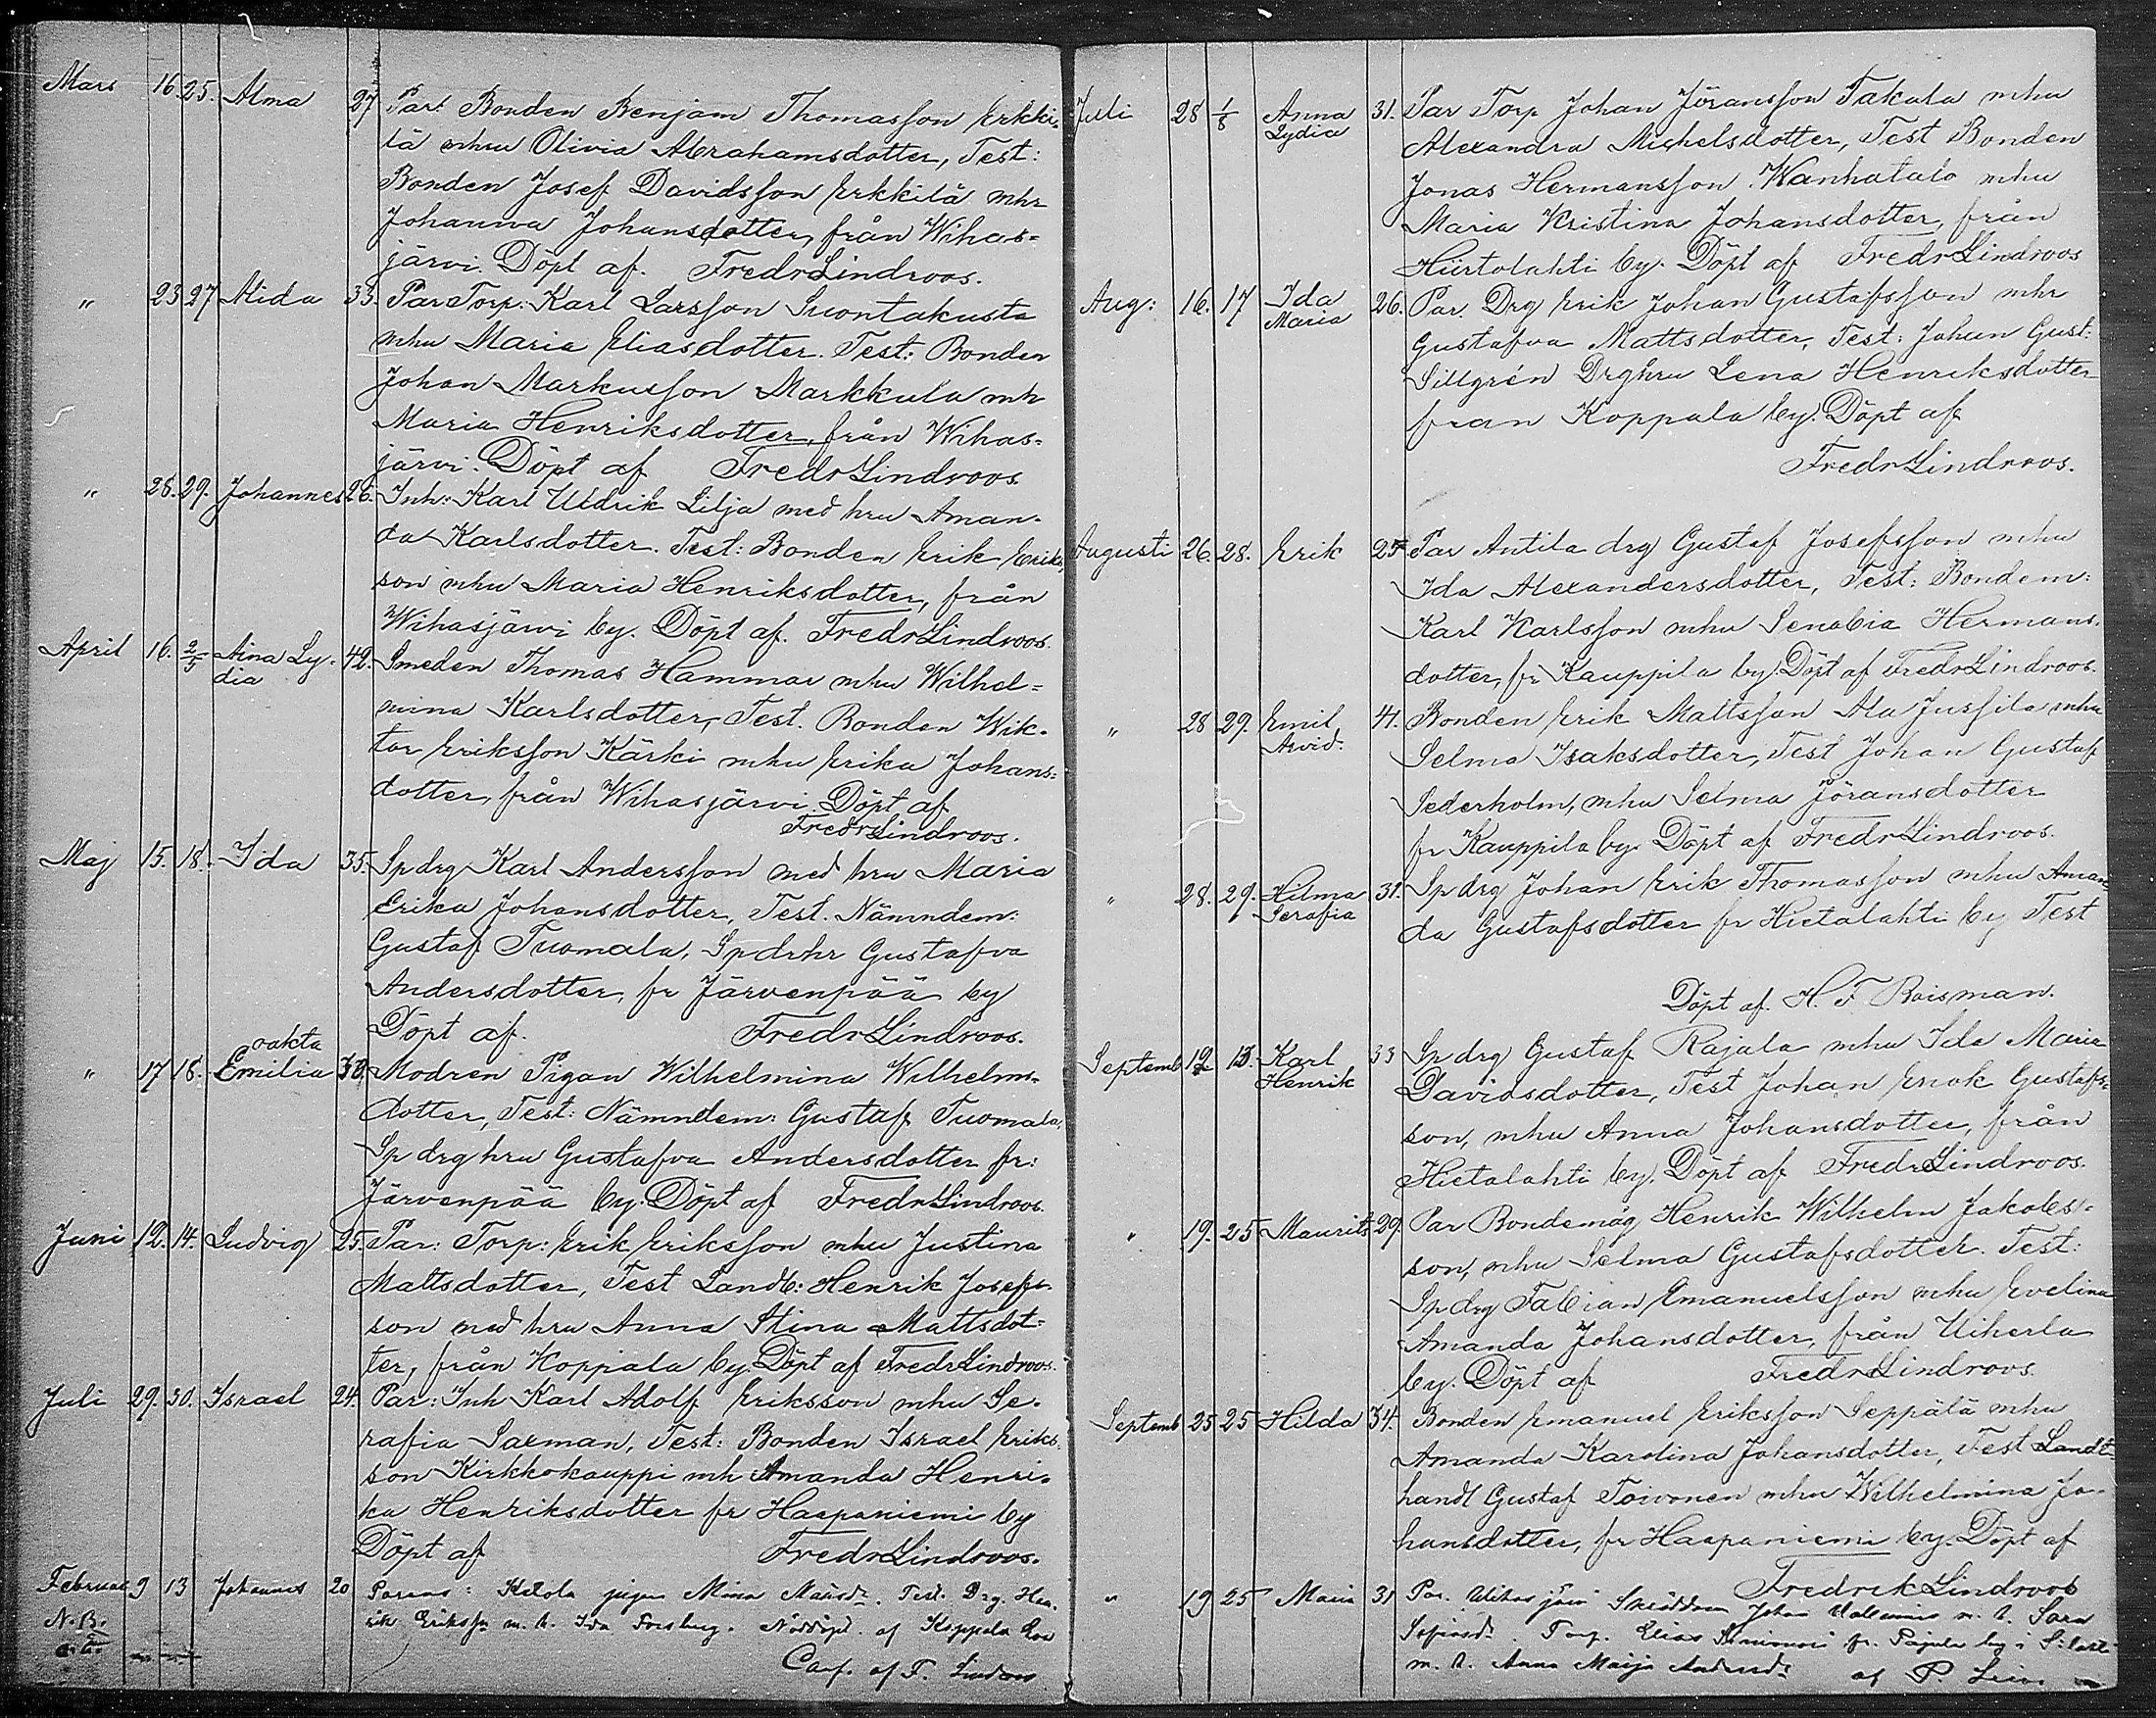 Mars 16 25. Alma 27 Par: Bonden Benjam Thomasson Erkki-
lä mhu Olivia Abrahamsdotter, Test:
Bonden Josef Davidsson Erkkilä mhr
Johanna Johansdotter, från Wihas-
järvi. Döpt af. Fredr Lindroos.
" 23 27 Alida 33. Par Torp. Karl Larsson Suontakusta
mhu Maria Eliasdotter. Test: Bonden
Johan Markusson Markkula mh
Maria Henriksdotter, från Wihas-
järvi. Döpt af Fredr Lindroos.
" 28. 29. Johannes 26. Inh: Karl Uldrik Lilja med hru Aman-
da Karlsdotter. Test: Bonden Erik Eriks-
son mhu Maria Henriksdotter, från
Wihasjärvi by. Döpt af. Fredr Lindroos.
April 16. 2/5 Aina Ly- 42. Smeden Thomas Hammar mhu Wilhel-
dia
mina Karlsdotter, Test. Bonden Wik-
tor Eriksson Kärki mhu Erika Johans-
dotter, från Wihasjärvi. Döpt af
Fredr Lindroos.
Maj 15. 18. Ida 35. Spdrg Karl Andersson med hru Maria
Erika Johansdotter, Test. Nämndem:
Gustaf Tuomala, Spdrhr Gustafva
Andersdotter, fr Järvenpää by
Döpt af. Fredr Lindroos.
oakta
" 17 18. Emilia 30. Modren Pigan Wilhelmina Wilhelms-
dotter, Test: Nämndem: Gustaf Tuomala,
Sp drg hru Gustafva Andersdotter fr:
Järvenpää by. Döpt af Fredr Lindroos.
Juni 12. 14. Ludvig 25. Par: Torp: Erik Eriksson mhu Justina
Mattsdotter, Test Landb: Henrik Josefs-
son med hru Anna Stina Mattsdot-
ter, från Koppala by Döpt af Fredr Lindroos.
Juli 29. 30. Israel 24. Par: Inh Karl Adolf Eriksson mhu Se-
rafia Saxman, Test: Bonden Israel Eriks-
son Kirkkokauppi mh Amanda Henri-
ka Henriksdotter fr Haapaniemi by
Döpt af Fredr Lindroos.
Februar 9 13 Johannes 20 Parens: Ketola pigan Mina Test. Drg. Hen-
N.B. rik Eriksson m. h. Ida Forsberg. Nöddöpt af Koppala
Conf. af F. Lindroos
Juli 28 1/8 Anna 31. Par Torp Johan Jöransson Takala mhu
Lydia Alexandra Michelsdotter, Test Bonden
Jonas Hermansson Wanhatalo mhu
Maria Kristina Johansdotter, från
Hiirtolahti by. Döpt af Fredr Lindroos
Aug: 16. 17 Ida 26. Par. Drg Erik Johan Gustafsson mhr
Maria
Gustafva Mattsdotter, Test: Johan Gust:
Sillgrén Drghru Lena Henriksdotter
från Koppala by. Döpt af
Fredr Lindroos.
Augusti 26. 28. Erik 25 Par Antila drg Gustaf Josefsson mhu
Ida Alexandersdotter, Test: Bondem:
Karl Karlsson mhu Senobia Hermans-
dotter, fr Kauppila by. Döpt af Fredr Lindroos.
" 28 29. Emil 41. Bonden Erik Mattsson Ala Jussila mhu
Arvid.
Selma Isaksdotter, Test Johan Gustaf
Sederholm, mhu Selma Jöransdotter
fr Kauppila by. Döpt af Fredr Lindroos.
" 28. 29. Hilma 31. Sp drg Johan Erik Thomasson mhu Aman
Serafia
da Gustafsdotter fr Hietalahti by Test
Döpt af. H. F Roisman.
Septemb 12 13. Karl 33 Sp drg Gustaf Rajala mhu Ida Maria
Henrik
Davidsdotter, Test Johan Enok Gustafs-
son, mhu Anna Johansdotter, från
Hietalahti by. Döpt af Fredr Lindroos.
" 19. 25 Maurits 29. Par Bondemåg Henrik Wilhelm Jakobs-
son, mhu Selma Gustafsdotter. Test:
Sp drg Fabian Emanuelsson mhu Evelina
Amanda Johansdotter, från Uiherla
by. Döpt af Fredr Lindroos.
Septemb 25 25 Hilda 34. Bonden Emanuel Eriksson Seppälä mhu
Amanda Karolina Johansdotter, Test Landt
handl Gustaf Toivonen mhu Wilhelmina Jo-
hansdotter, fr Haapaniemi by. Döpt af
Fredrik Lindroos
" 19 25 Maria 31 Par. Wihasjärvi Skräddaren Johan m. h. Sara
Torp. Elias fr. Pajula by i
m. h. Anna Maija Andersdr af P.